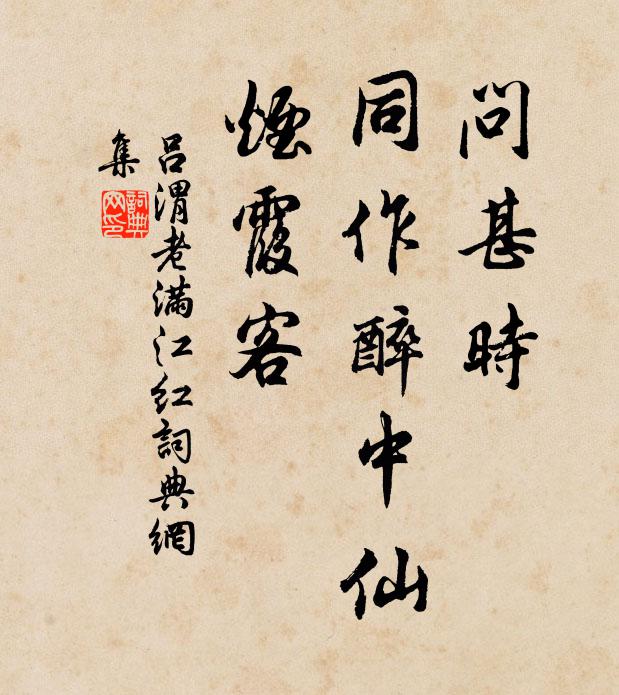 問甚時
同作醉中仙
煙霞客
呂渭老滿江紅詞典網
集
詞典
网印